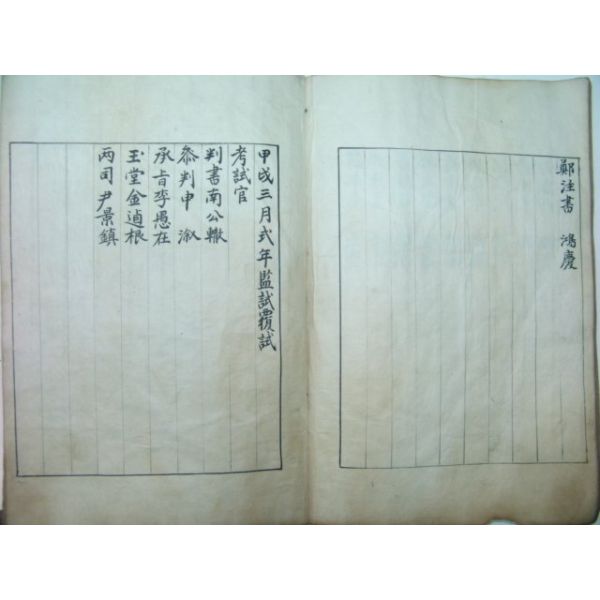 鄭注書 鴻慶
甲戌三月式年監試覆試
考試官
判書南公轍
叅判申溆
承旨李愚在
玉堂金逌根
两司尹景鎮